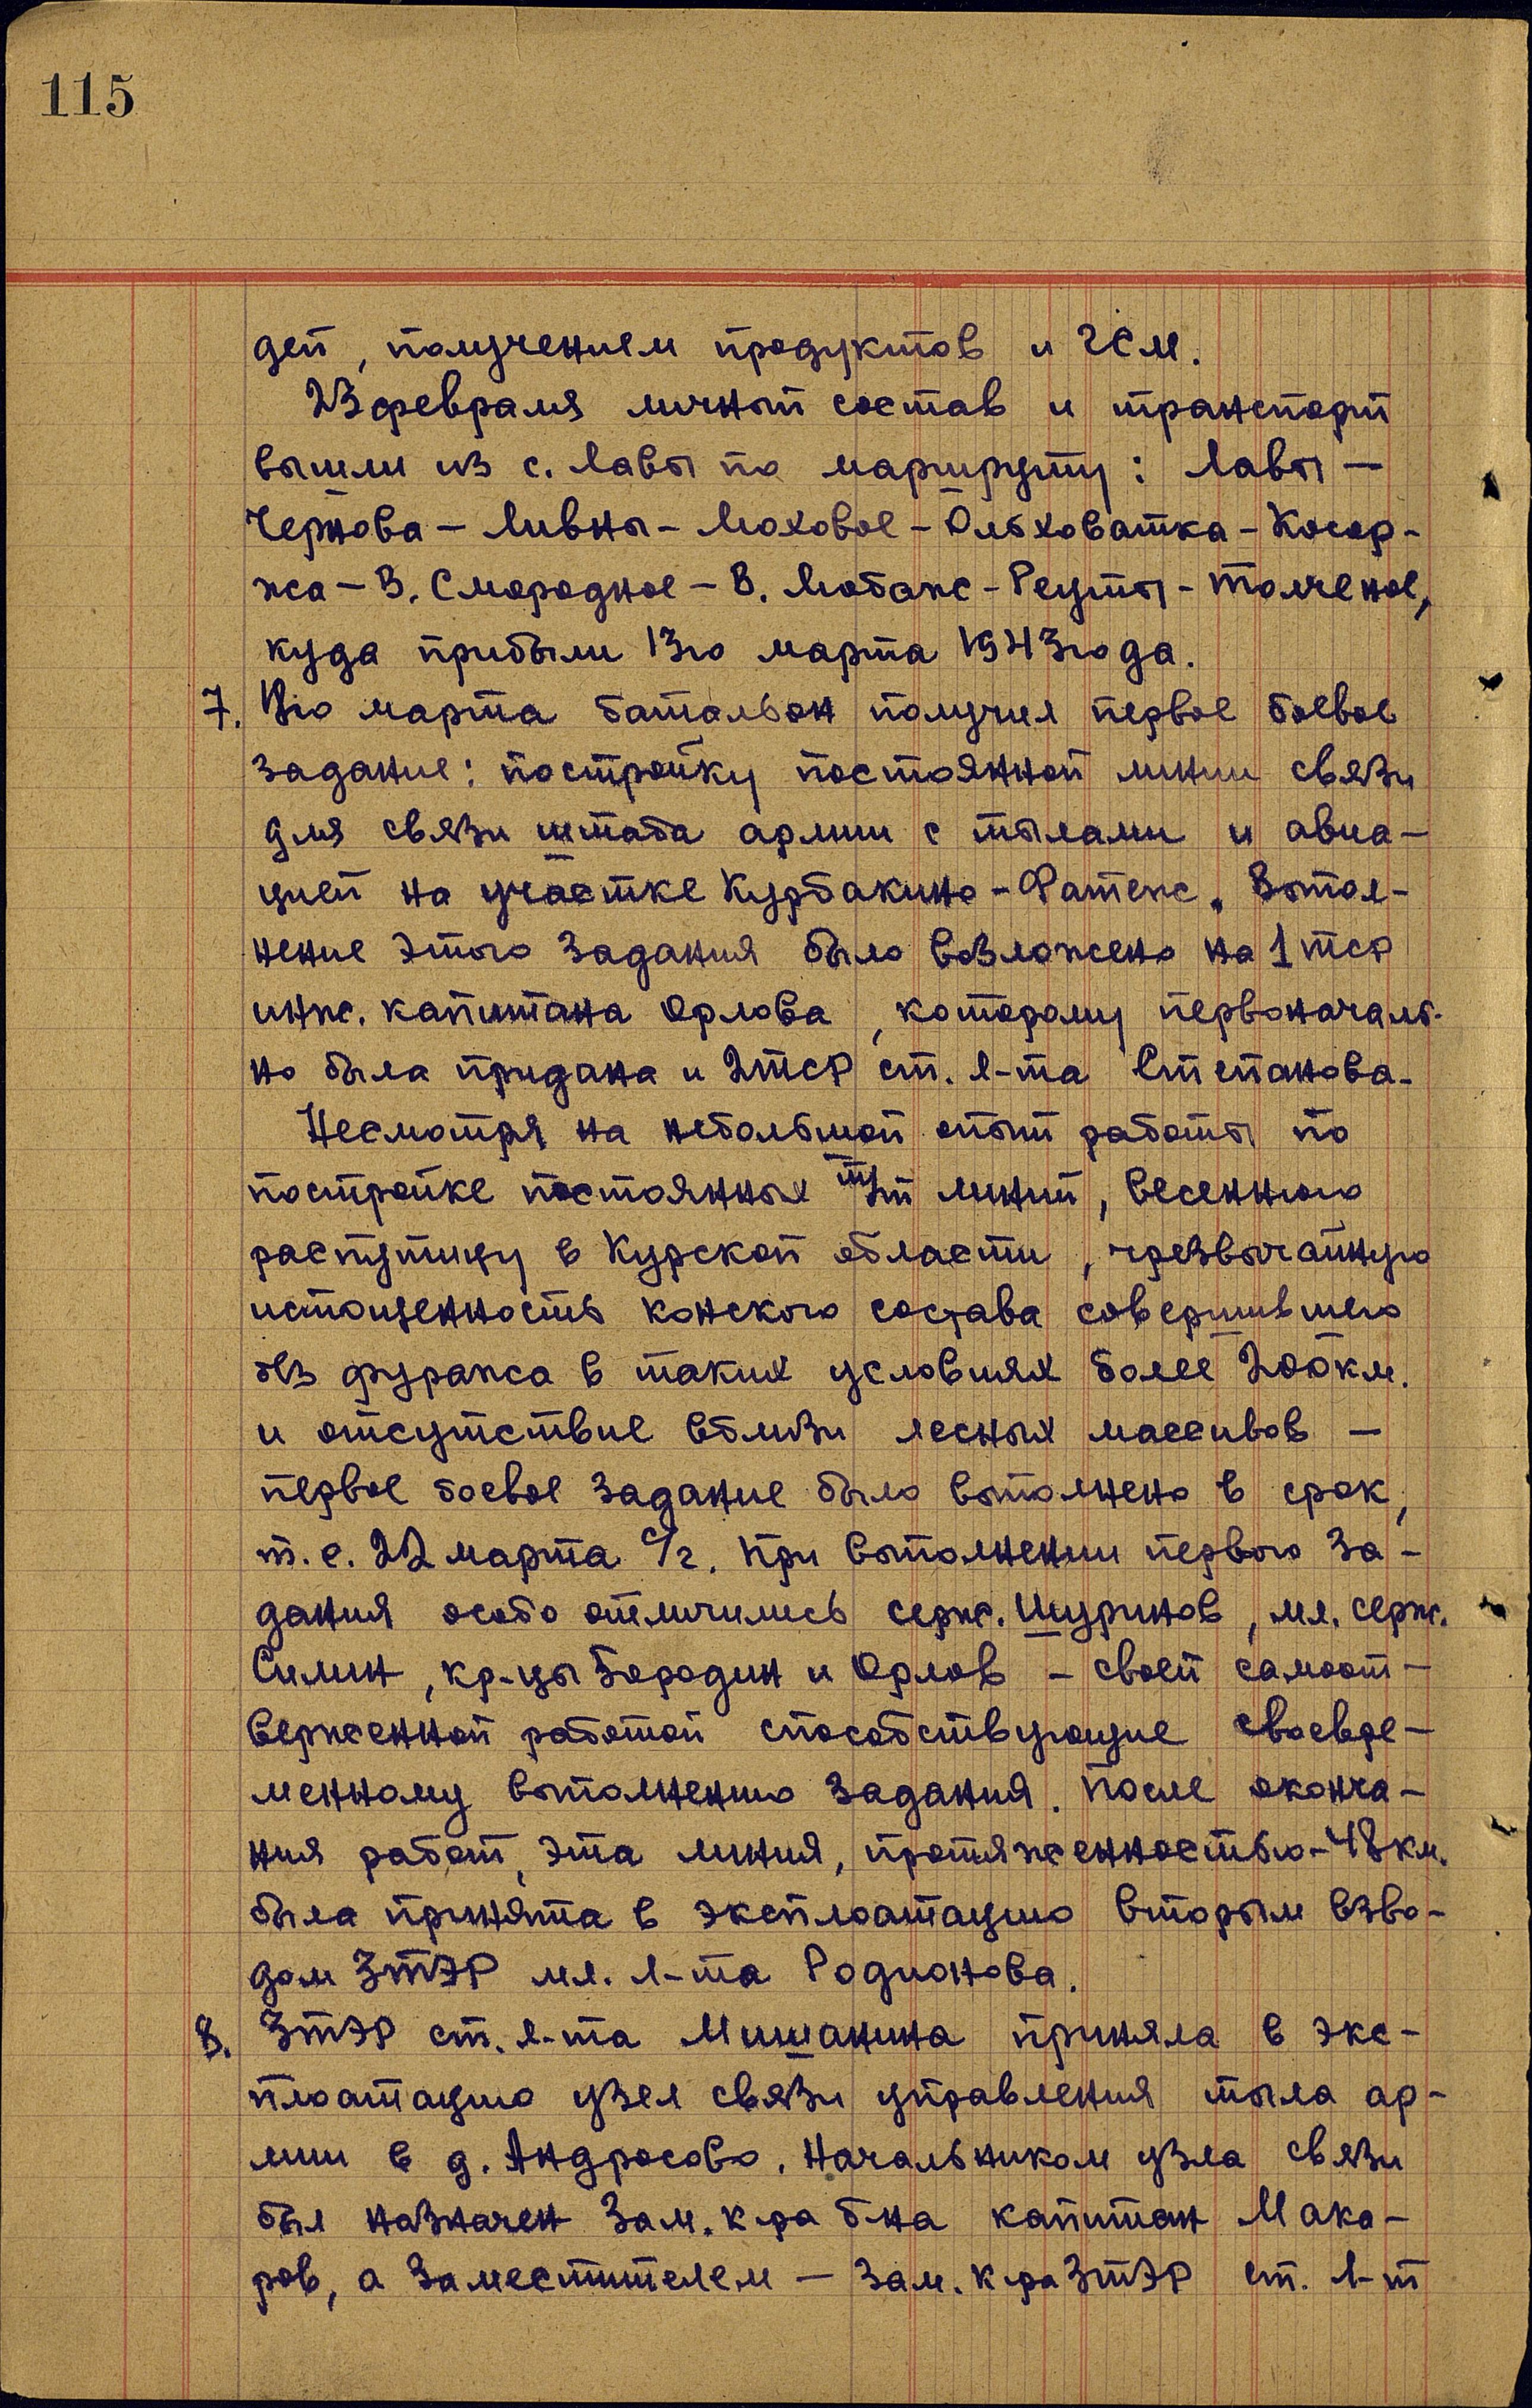 115
дей, получением продуктов и ГСМ.
23 февраля личный состав и транспорт
вышли из с. Лавы по маршруту: Лавы —
Чернова — Ливны — Моховое — Ольховатка — Косор-
жа — В. Смородное — В. Любаж — Реуты — Толченое,
куда прибыли 13го марта 1943 года.
7. марта батальон получил первое боевое
задание: постройку постоянной линии связи
для связи штаба армии с тылами и авиа-
цией на участке Курбакино — Фатеж. Выпол-
нение этого задания было возложено на 1 ТСР
инж. капитана Орлова, которому первоначаль-
но была придана и 2ТСР ст. л-та Степанова.
Несмотря на небольшой опыт работы по
постройке постоянных линий, весеннюю
распутицу в Курской области, чрезвычайную
истощенность конского состава совершившего
без фуража в таких условиях более 200 км.
и отсутствие вблизи лесных массивов —
первое боевое задание было выполнено в срок,
т. е. 22 марта с/г. При выполнении первого за-
дания особо отличились серж. Шуринов, мл. серж.
Силин, кр-цы Бородин и Орлов — своей самоот-
верженной работой способствующие своевре-
менному выполнению задания. После оконча-
ния работ, эта линия, протяженностью — 48 км.
была принята в эксплоатацию вторым взво-
дом 3ТЭР мл. л-та Родионова.
8. 3ТЭР ст. л-та Мишанина приняла в экс-
плоатацию узел связи управления тыла ар-
мии в д. Андросово. Начальником узла связи
был назначен зам. к-ра б-на капитан Мака-
ров, а заместителем — зам. к-ра 3ТЭР ст. л-т